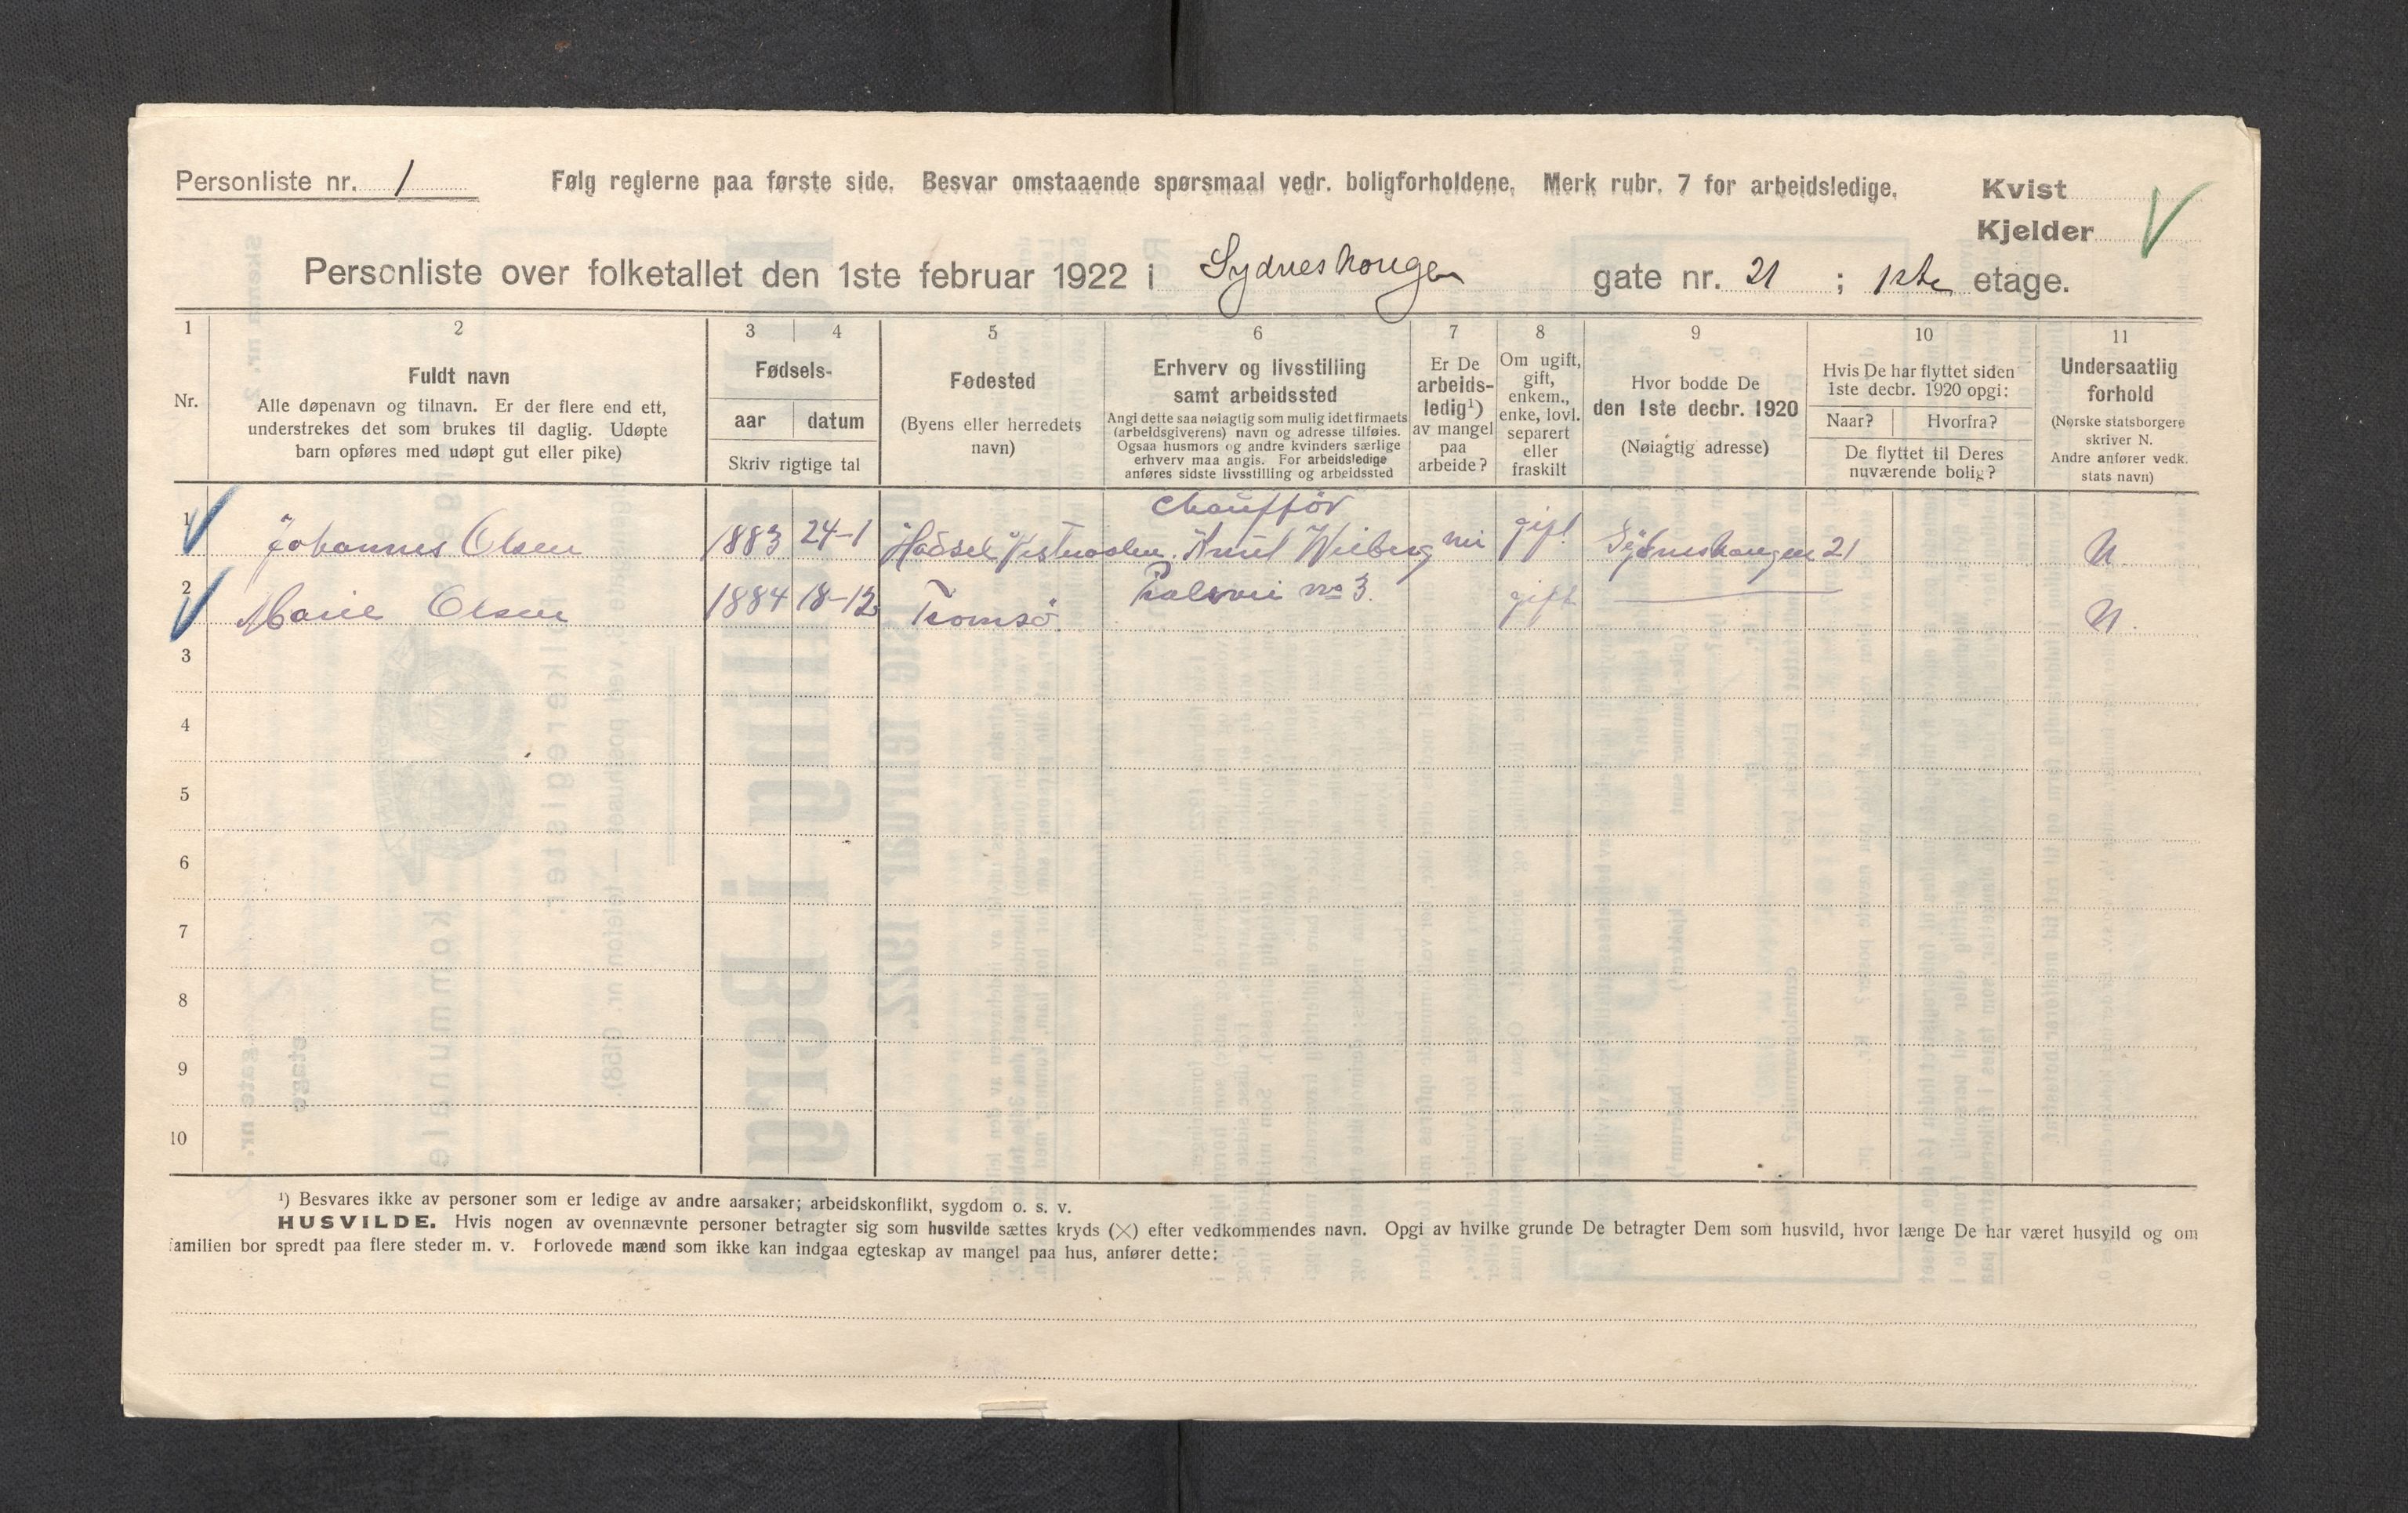 Personliste nr. 1
Følg reglerne paa første side. Besvar omstaaende spørsmaal vedr. boligforholdene. Merk rubr. 7 for arbeidsledige.
Kvist
Kjelder
Personliste over folketallet den 1ste februar 1922 i Sydneshaugen gate nr. 21 ; 1ste etage.
1 2 3 4 5 6 7 8 9 10 11
Nr.
Fuldt navn
Alle døpenavn og tilnavn. Er der flere end ett,
understrekes det som brukes til daglig. Udøpte
barn opføres med udøpt gut eller pike)
Fødsels-
aar datum
Skriv rigtige tal
Fødested
(Byens eller herredets
navn)
Erhverv og livsstilling
samt arbeidssted
Angi dette saa nøiagtig som mulig idet firmaets
(arbeidsgiverens) navn og adresse tilføies.
Ogsaa husmors og andre kvinders særlige
erhverv maa angis. For arbeidsledige
anføres sidste livsstilling og arbeidssted
Er De
arbeids-
ledig¹)
av mangel
paa
arbeide?
Om ugift,
gift,
enkem.,
enke, lovl.
separert
eller
fraskilt
Hvor bodde De
den 1ste decbr. 1920
(Nøiagtig adresse)
Hvis De har flyttet siden
1ste decbr. 1920 opgi:
Naar? Hvorfra?
De flyttet til Deres
nuværende bolig?
Undersaatlig
forhold
(Norske statsborgere
skriver N.
Andre anfører vedk.
stats navn)
Chaufför
1 Johannes Olsen 1883 24-1 Hadsel gift Sydneshaugen 21 N.
2 Marie Olsen 1884 18-12 Tromsö no 3. gift N.
3
4
5
6
7
8
9
10
¹) Besvares ikke av personer som er ledige av andre aarsaker; arbeidskonflikt, sygdom o. s. v.
HUSVILDE. Hvis nogen av ovennævnte personer betragter sig som husvilde sættes kryds (×) efter vedkommendes navn. Opgi av hvilke grunde De betragter Dem som husvild, hvor længe De har været husvild og om
familien bor spredt paa flere steder m. v. Forlovede mænd som ikke kan indgaa egteskap av mangel paa hus, anfører dette: